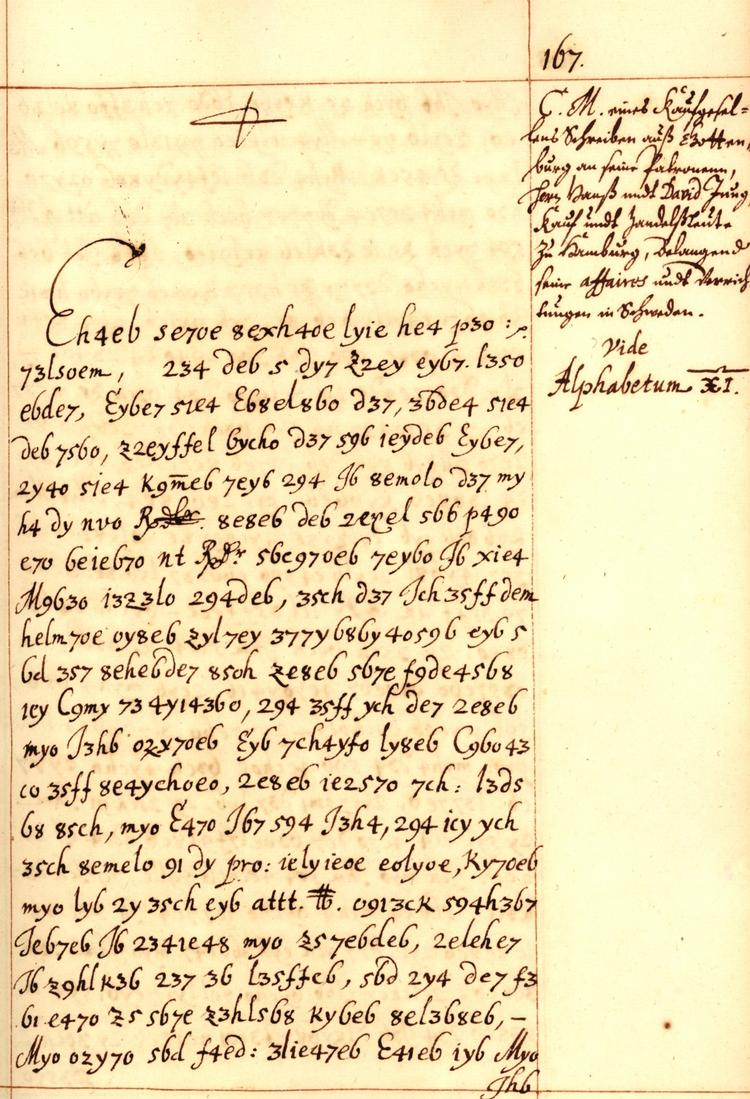 167.
C. M. eines Kaufgesel=
lens Schreiben auß Gotten
burg an seine Patronenn,
Herr Hanß undt David Jung
Kauf undt Handelßleute
zu Hamburg, belangend
seine affaires undt Verrich
tungen in Schweden.
Vide
Alphabetum XI.
Ch4eb se7oe 8exh4oe lyie he4 p3o :
73lsoem, 234 deb s dy7 22ey eyb7. l35o
ebde7, Eybe7 51e4 Eb8el8bo d37, 3bde4 51e4
deb 75bo, z2eyffel bycho d37 596 ieydeb Eybe7,
2y4o 51e4 K9m̄eb 7eyb 294 Jb 8emolo d37 my
h4 dy nvo 8e8eb deb 2exel 5bb p49o
e7o beieb7o nt Rdr 5bc97oeb 7eybo Jb xie4
M9b3o i323lo 294deb, 35ch d37 Jch 35ff dem
helm7oe oy8eb zyl7ey 377yb8by4o59b eyb 5
bd 357 8ehebde7 85oh ze8eb 5b7e f9de45b8
iey C9my 734y143bo, 294 35ff ych de7 2e8eb
myo J3hb ozy7oeb Eyb 7ch4yfo ly8eb C9bo43
co 35ff 8e4ychoeo, 2e8eb ie257o 7ch: l3ds
b8 85ch, myo E47o Jb7 594 J3h4, 294 icy ych
35ch 8emelo 91 dy pro: ielyieoe eolyoe, Ky7oeb
myo lyb 2y 35ch eyb attt. ⋕. o913cK 594h3b7
Jeb7eb Jb 2341e48 myo z57ebdeb, 2elehe7
Jb z9hlK3b 237 3b l35ffcb, 5bd 2y4 de7 f3
b1 e47o z5 5b7e z3hl5b8 Kybeb 8el3b8eb, –
Myo ozy7o 5bd f4ed: 3lie47eb E41eb iyb Myo
Jhb